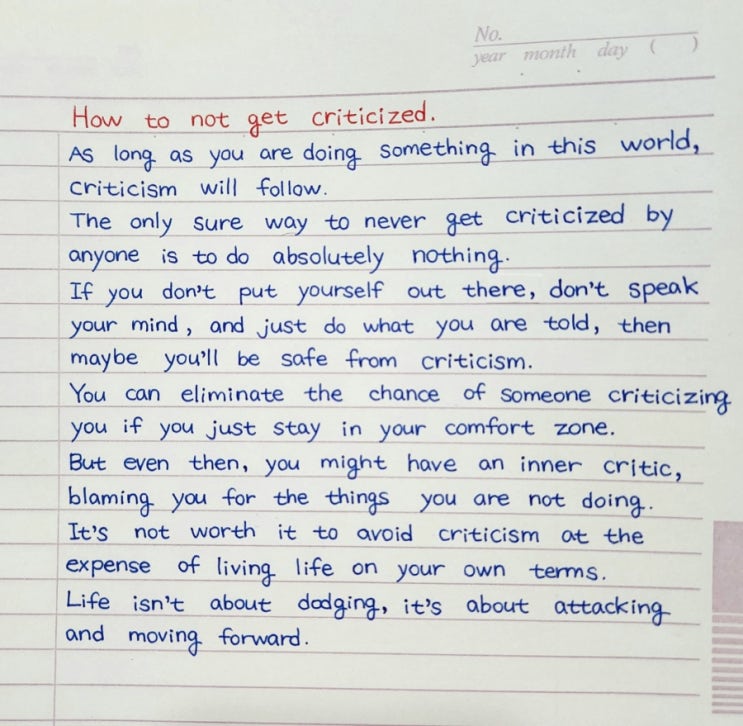 No.
year month day ( )
How to not get criticized.
As long as you are doing something in this world,
criticism will follow.
The only sure way to never get criticized by
anyone is to do absolutely nothing.
If you don't put yourself out there, don't speak
your mind, and just do what you are told, then
maybe you'll be safe from criticism.
You can eliminate the chance of someone criticizing
you if you just stay in your comfort zone.
But even then, you might have an inner critic,
blaming you for the things you are not doing.
It's not worth it to avoid criticism at the
expense of living life on your own terms.
Life isn't about dodging, it's about attacking
and moving forward.